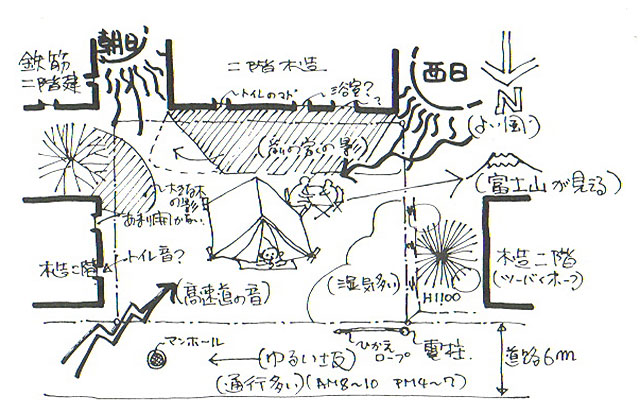 朝日
鉄筋
二階建
二階木造
トイレのマド
浴室??
西日
N
(よい風)
(前の家の影)
(富士山が見える)
大きな木
の影
あまり開かない
木造二階
トイレ音?
(高速道の音)
(湿気多い)
H1100
木造二階
(ツーバイホー)
マンホール
(ゆるい坂)
ひかえ
ロープ
電柱
道路6m
(通行多い)(AM8~10 PM4~7)